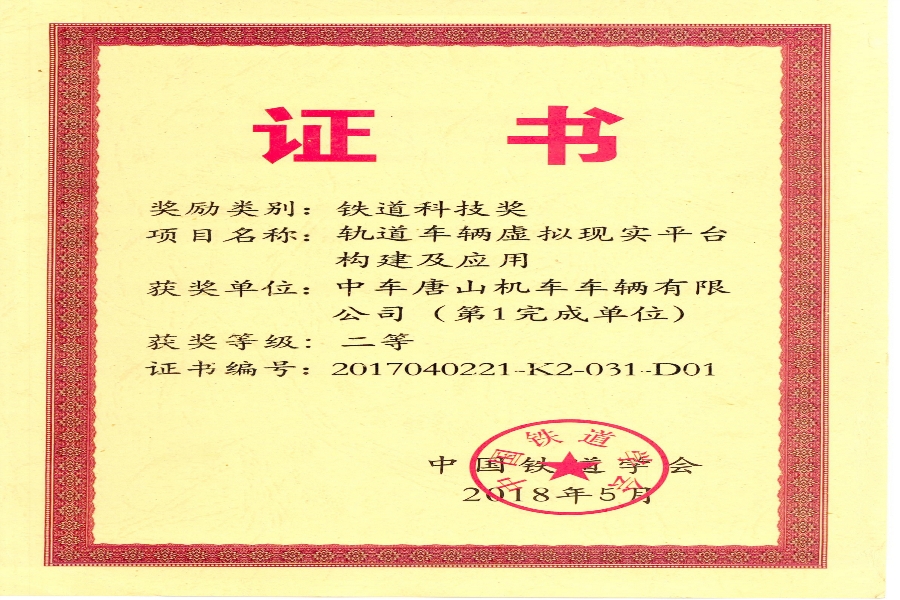 证 书
奖励类别：铁道科技奖
项目名称：轨道车辆虚拟现实平台
构建及应用
获奖单位：中车唐山机车车辆有限
公司（第1完成单位）
获奖等级：二等
证书编号：2017040221-K2-031-D01
中国铁道学会
2018年5月
中国铁道学会